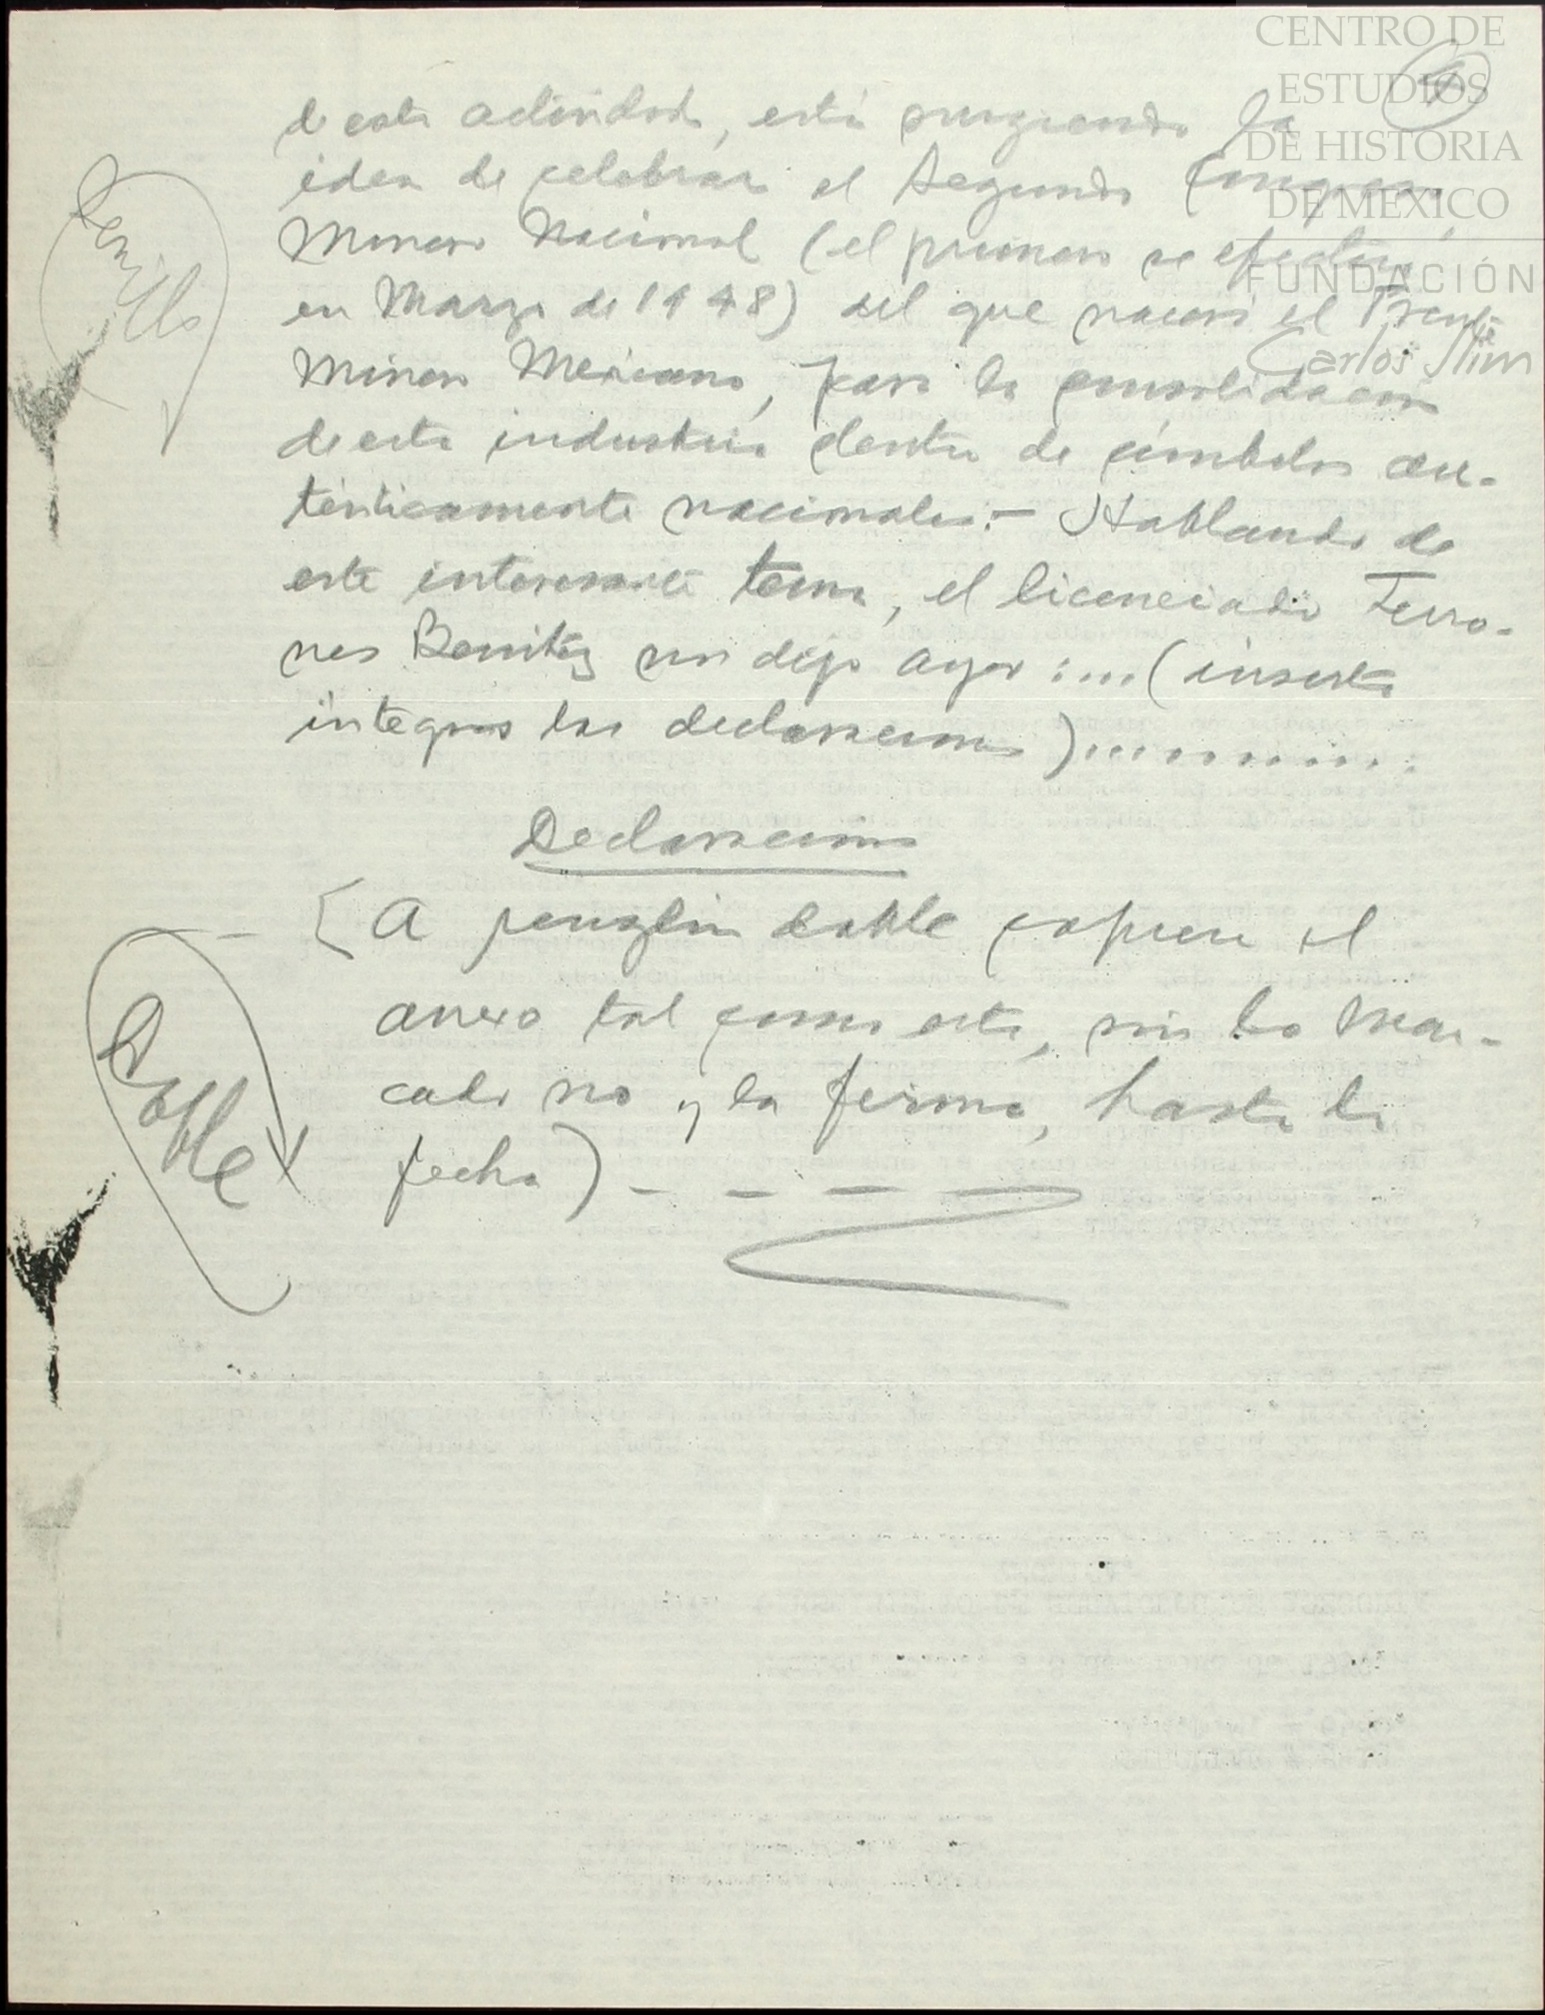 CENTRO DE
ESTUDIOS
DE HISTORIA
DE MÉXICO
FUNDACIÓN
Carlos Slim
de esta actividad, está surgiendo la
idea de celebrar el Segundo Congreso
Minero Nacional (el primero se efectuó
en Marzo de 1948) del que nacerá el Frente
Minero Mexicano, para la consolidación
de esta industria dentro de símbolos au-
ténticamente nacionales.- Hablando de
este interesante tema, el licenciado Terro-
nes Benítez nos dijo ayer :...(inserta
íntegras las declaraciones)..........
Sencillo
Declaraciones
[A renglón doble copiese el
anexo tal como está, sin lo mar-
cado no y la firma, hasta la
fecha) - - - -
Doble